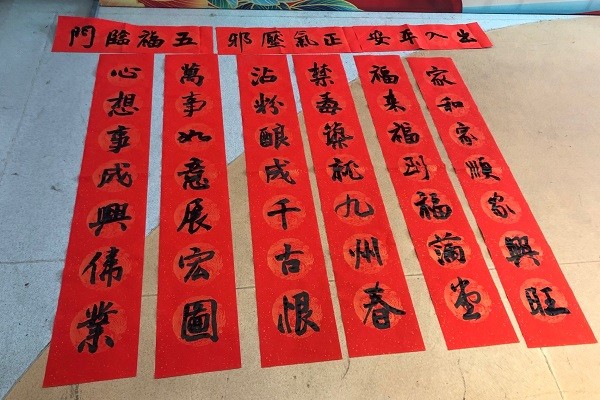 出入平安
正氣壓邪
五福臨門
家和家順家興旺
福来福到福滿堂
禁毒築就九州春
沾粉酿成千古恨
萬事如意展宏圖
心想事成興偉業